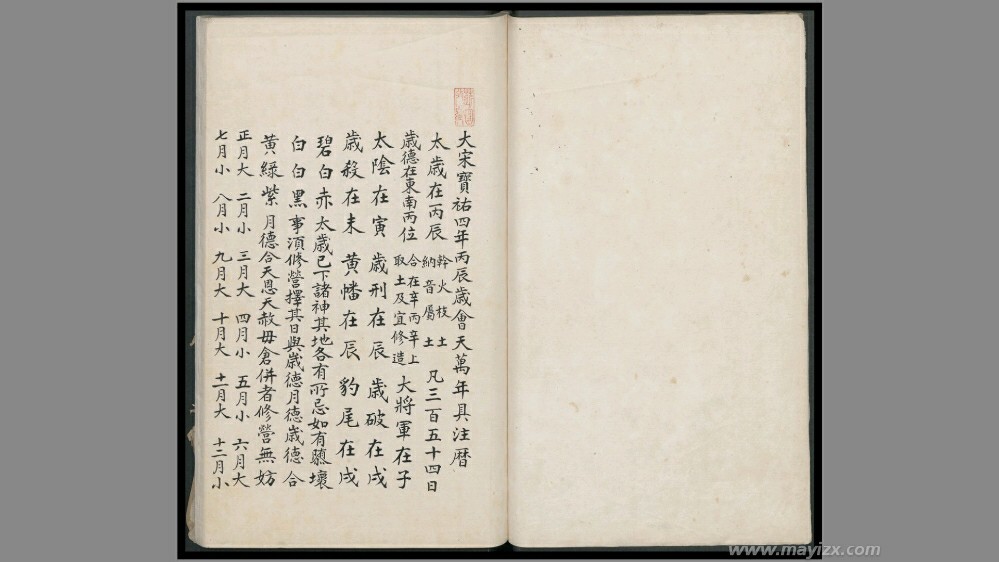 大宋寶祐四年丙辰歲會天萬年具注曆
太歲在丙辰 幹火枝土 納音屬土 凡三百五十四日
歲德在東南丙位 合在辛丙辛上 取土及宜修造 大將軍在子
太陰在寅 歲刑在辰 歲破在戌
歲殺在未 黃幡在辰 豹尾在戌
碧白赤 太歲已下諸神其地各有所忌如有隳壞
白白黑 事須修營擇其日與歲德月德歲德合
黃綠紫 月德合天恩天赦毋倉併者修營無妨
正月大 二月小 三月大 四月小 五月小 六月大
七月小 八月小 九月大 十月大 十一月大 十二月小
www.mayizx.com